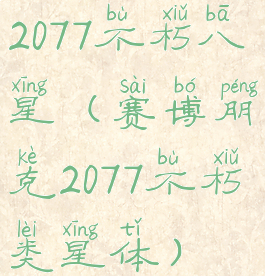 bù xiǔ bā
2077不朽八
xīng sài bó péng
星（赛博朋
kè bù xiǔ
克2077不朽
lèi xīng tǐ
类星体）